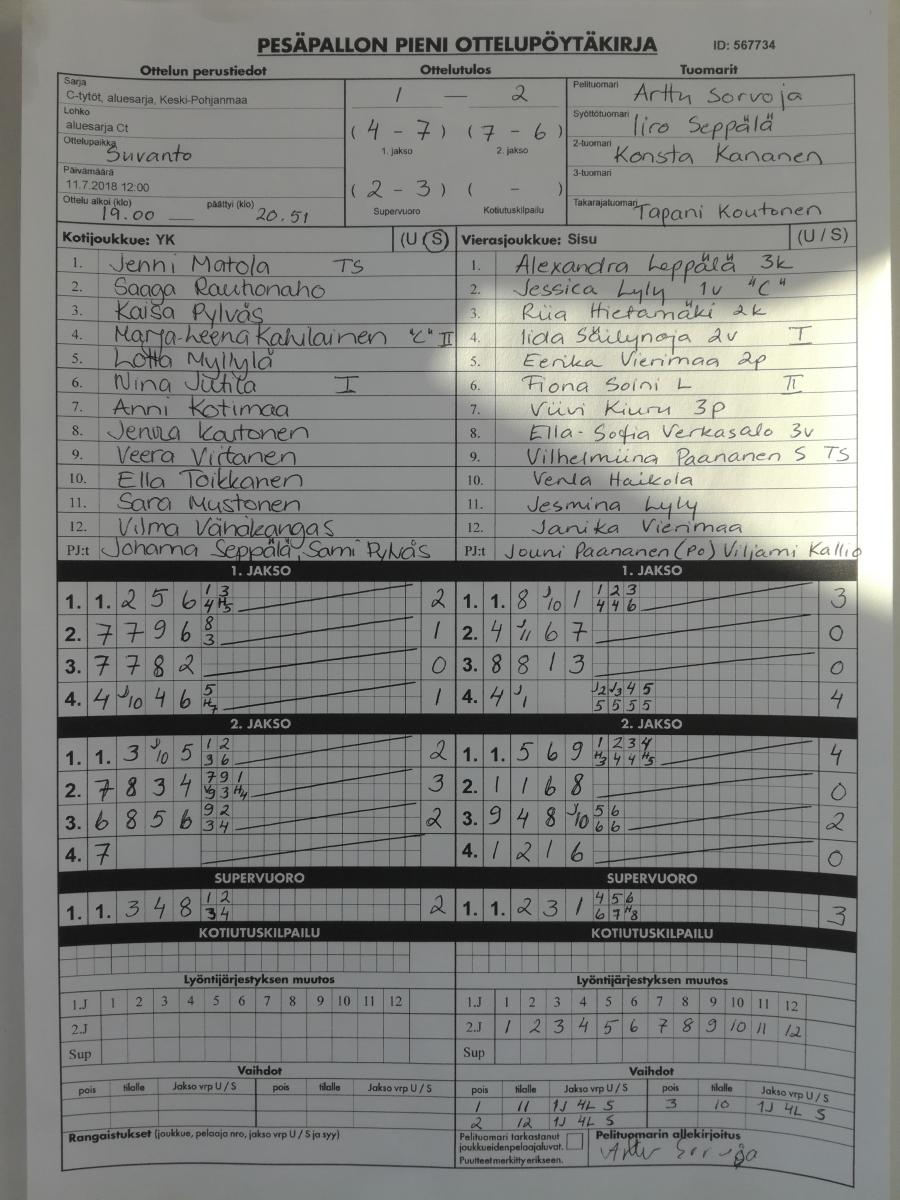 PESÄPALLON PIENI OTTELUPÖYTÄKIRJA ID: 567734
Ottelun perustiedot Ottelutulos Tuomarit
Sarja
C-tytöt, aluesarja, Keski-Pohjanmaa
Lohko
aluesarja Ct
Ottelupaikka
Suvanto
Päivämäärä
11.7.2018 12:00
Ottelu alkoi (klo) päättyi (klo)
19.00 — 20.51
1 — 2
(4 - 7) (7 - 6)
1. jakso 2. jakso
(2 - 3) ( - )
Supervuoro Kotiutuskilpailu
Pelituomari Arttu Sorvoja
Syöttötuomari Iiro Seppälä
2-tuomari Konsta Kananen
3-tuomari
Takarajatuomari Tapani Koutonen
Kotijoukkue: YK (U / S)
1. Jenni Matola TS
2. Saaga Rautionaho
3. Kaisa Pylväs
4. Marja-Leena Kahilainen "C" II
5. Lotta Myllylä
6. Nina Jutila I
7. Anni Kotimaa
8. Jenna Koutonen
9. Veera Virtanen
10. Ella Toikkanen
11. Sara Mustonen
12. Vilma Vähäkangas
PJ:t Johanna Seppälä, Sami Pylväs
Vierasjoukkue: Sisu (U / S)
1. Alexandra Leppälä 3k
2. Jessica Lyly 1v "C"
3. Riia Hietamäki 2k
4. Iida Säilynoja 2v I
5. Eerika Vierimaa 2p
6. Fiona Soini L II
7. Viivi Kiuru 3p
8. Ella-Sofia Verkasalo 3v
9. Vilhelmiina Paananen S TS
10. Venla Haikola
11. Jesmina Lyly
12. Janika Vierimaa
PJ:t Jouni Paananen (PO) Viljami Kallio
1. JAKSO
1. 1. 2 5 6 1 3 2
4 H5
2. 7 7 9 6 8 1
3
3. 7 7 8 2 0
4. 4 J/10 4 6 5 1
H7
1. JAKSO
1. 1. 8 J/10 1 1 2 3 3
4 4 6
2. 4 J/11 6 7 0
3. 8 8 1 3 0
4. 4 J/1 J2 J3 4 5 4
5 5 5 5
2. JAKSO
1. 1. 3 J/10 5 1 2 2
3 6
2. 7 8 3 4 7 9 1 3
V9 3 H4
3. 6 8 5 6 9 2 2
3 4
4. 7
2. JAKSO
1. 1. 5 6 9 1 2 3 4 4
H3 4 4 H5
2. 1 1 6 8 0
3. 9 4 8 J/10 5 6 2
6 6
4. 1 2 1 6 0
SUPERVUORO
1. 1. 3 4 8 1 2 2
3 4
SUPERVUORO
1. 1. 2 3 1 4 5 6 3
6 7 H8
KOTIUTUSKILPAILU KOTIUTUSKILPAILU
Lyöntijärjestyksen muutos
1.J 1 2 3 4 5 6 7 8 9 10 11 12
2.J
Sup
Lyöntijärjestyksen muutos
1.J 1 2 3 4 5 6 7 8 9 10 11 12
2.J 1 2 3 4 5 6 7 8 9 10 11 12
Sup
Vaihdot
pois tilalle Jakso vrp U / S pois tilalle Jakso vrp U / S
Vaihdot
pois tilalle Jakso vrp U / S pois tilalle Jakso vrp U / S
1 11 1J 4L S 3 10 1J 4L S
2 12 1J 4L S
Rangaistukset (joukkue, pelaaja nro, jakso vrp U / S ja syy)
Pelituomari tarkastanut
joukkueidenpelaajaluvat.
Puutteet merkitty erikseen.
Pelituomarin allekirjoitus
Arttu Sorvoja